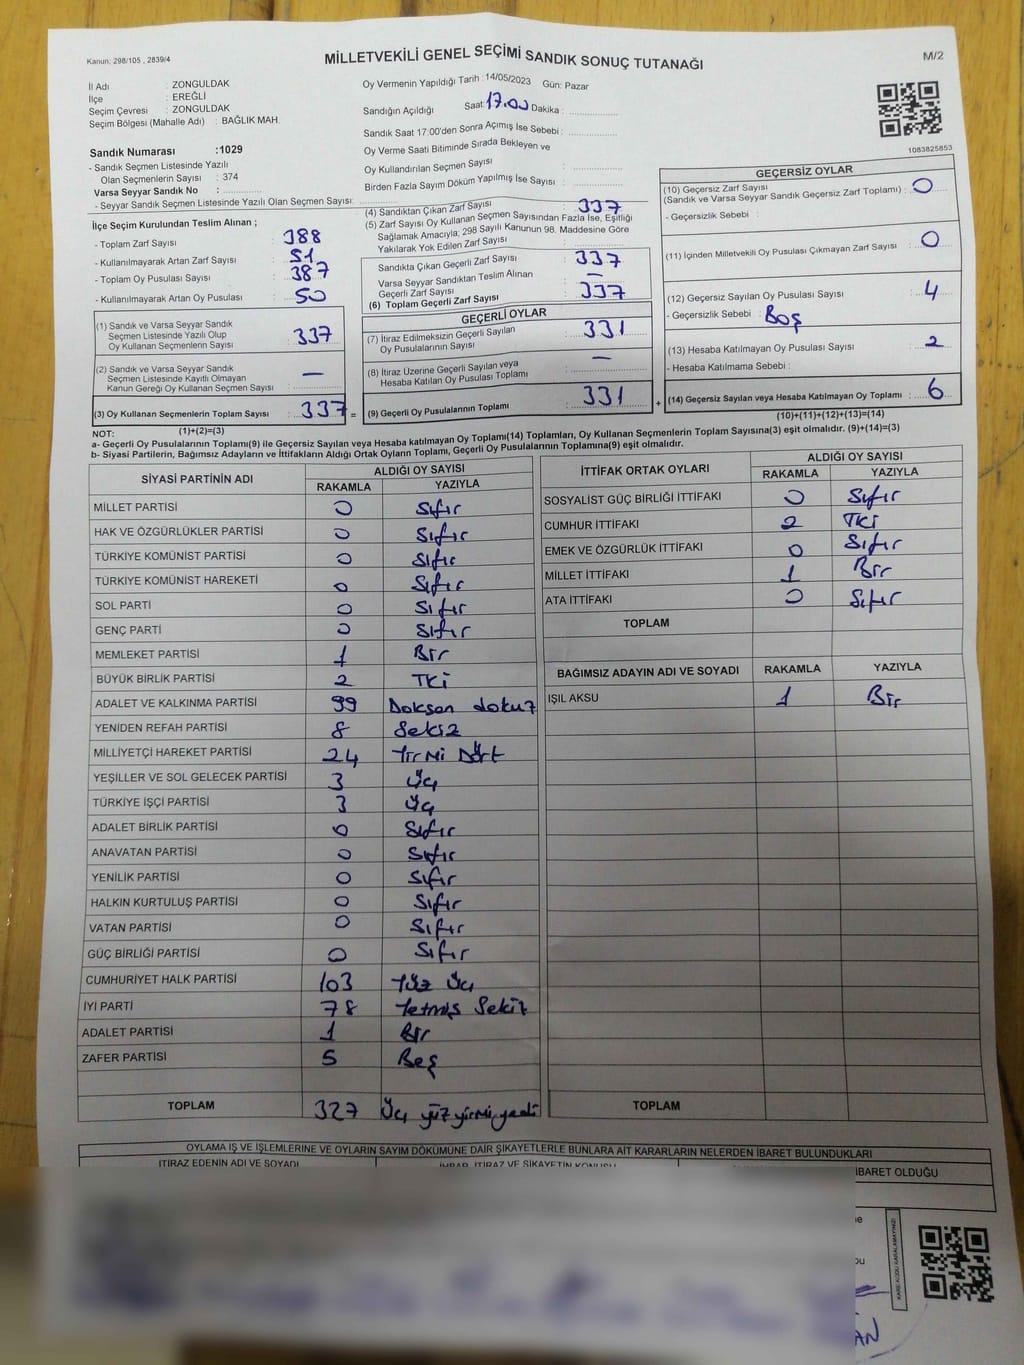 Kanun: 298/105 , 2839/4
MİLLETVEKİLİ GENEL SEÇİMİ SANDIK SONUÇ TUTANAĞI
M/2
İl Adı : ZONGULDAK
İlçe : EREĞLİ
Seçim Çevresi : ZONGULDAK
Seçim Bölgesi (Mahalle Adı) : BAĞLIK MAH.
Oy Vermenin Yapıldığı Tarih : 14/05/2023 Gün: Pazar
Sandığın Açıldığı Saat: 17.00 Dakika :
Sandık Saat 17:00'den Sonra Açımış İse Sebebi :
Oy Verme Saati Bitiminde Sırada Bekleyen ve
Oy Kullandırılan Seçmen Sayısı :
Birden Fazla Sayım Döküm Yapılmış İse Sayısı :
1083825853
Sandık Numarası :1029
- Sandık Seçmen Listesinde Yazılı
Olan Seçmenlerin Sayısı : 374
Varsa Seyyar Sandık No :
- Seyyar Sandık Seçmen Listesinde Yazılı Olan Seçmen Sayısı:
İlçe Seçim Kurulundan Teslim Alınan ;
- Toplam Zarf Sayısı : 388
- Kullanılmayarak Artan Zarf Sayısı : 51
- Toplam Oy Pusulası Sayısı : 387
- Kullanılmayarak Artan Oy Pusulası : 50
(1) Sandık ve Varsa Seyyar Sandık
Seçmen Listesinde Yazılı Olup
Oy Kullanan Seçmenlerin Sayısı : 337
(2) Sandık ve Varsa Seyyar Sandık
Seçmen Listesinde Kayıtlı Olmayan
Kanun Gereği Oy Kullanan Seçmen Sayısı : —
(3) Oy Kullanan Seçmenlerin Toplam Sayısı : 337 =
(1)+(2)=(3)
(4) Sandıktan Çıkan Zarf Sayısı : 337
(5) Zarf Sayısı Oy Kullanan Seçmen Sayısından Fazla İse, Eşitliği
Sağlamak Amacıyla; 298 Sayılı Kanunun 98. Maddesine Göre
Yakılarak Yok Edilen Zarf Sayısı :
Sandıkta Çıkan Geçerli Zarf Sayısı : 337
Varsa Seyyar Sandıktan Teslim Alınan
Geçerli Zarf Sayısı : —
(6) Toplam Geçerli Zarf Sayısı : 337
GEÇERLİ OYLAR
(7) İtiraz Edilmeksizin Geçerli Sayılan
Oy Pusulalarının Sayısı : 331
(8) İtiraz Üzerine Geçerli Sayılan veya
Hesaba Katılan Oy Pusulası Toplamı : —
(9) Geçerli Oy Pusulalarının Toplamı : 331 +
GEÇERSİZ OYLAR
(10) Geçersiz Zarf Sayısı
(Sandık ve Varsa Seyyar Sandık Geçersiz Zarf Toplamı) : 0
- Geçersizlik Sebebi :
(11) İçinden Milletvekili Oy Pusulası Çıkmayan Zarf Sayısı : 0
(12) Geçersiz Sayılan Oy Pusulası Sayısı : 4
- Geçersizlik Sebebi : Boş
(13) Hesaba Katılmayan Oy Pusulası Sayısı : 2
- Hesaba Katılmama Sebebi :
(14) Geçersiz Sayılan veya Hesaba Katılmayan Oy Toplamı : 6
(10)+(11)+(12)+(13)=(14)
NOT:
a- Geçerli Oy Pusulalarının Toplamı(9) ile Geçersiz Sayılan veya Hesaba katılmayan Oy Toplamı(14) Toplamları, Oy Kullanan Seçmenlerin Toplam Sayısına(3) eşit olmalıdır. (9)+(14)=(3)
b- Siyasi Partilerin, Bağımsız Adayların ve İttifakların Aldığı Ortak Oyların Toplamı, Geçerli Oy Pusulalarının Toplamına(9) eşit olmalıdır.
SİYASİ PARTİNİN ADI
ALDIĞI OY SAYISI
RAKAMLA YAZIYLA
MİLLET PARTİSİ 0 Sıfır
HAK VE ÖZGÜRLÜKLER PARTİSİ 0 Sıfır
TÜRKİYE KOMÜNİST PARTİSİ 0 Sıfır
TÜRKİYE KOMÜNİST HAREKETİ 0 Sıfır
SOL PARTİ 0 Sıfır
GENÇ PARTİ 0 Sıfır
MEMLEKET PARTİSİ 1 Bir
BÜYÜK BİRLİK PARTİSİ 2 İki
ADALET VE KALKINMA PARTİSİ 99 Doksan dokuz
YENİDEN REFAH PARTİSİ 8 Sekiz
MİLLİYETÇİ HAREKET PARTİSİ 24 Yirmi Dört
YEŞİLLER VE SOL GELECEK PARTİSİ 3 Üç
TÜRKİYE İŞÇİ PARTİSİ 3 Üç
ADALET BİRLİK PARTİSİ 0 Sıfır
ANAVATAN PARTİSİ 0 Sıfır
YENİLİK PARTİSİ 0 Sıfır
HALKIN KURTULUŞ PARTİSİ 0 Sıfır
VATAN PARTİSİ 0 Sıfır
GÜÇ BİRLİĞİ PARTİSİ 0 Sıfır
CUMHURİYET HALK PARTİSİ 103 Yüz Üç
İYİ PARTİ 78 Yetmiş Sekiz
ADALET PARTİSİ 1 Bir
ZAFER PARTİSİ 5 Beş
TOPLAM 327 Üç yüz yirmi yedi
İTTİFAK ORTAK OYLARI
ALDIĞI OY SAYISI
RAKAMLA YAZIYLA
SOSYALİST GÜÇ BİRLİĞİ İTTİFAKI 0 Sıfır
CUMHUR İTTİFAKI 2 İki
EMEK VE ÖZGÜRLÜK İTTİFAKI 0 Sıfır
MİLLET İTTİFAKI 1 Bir
ATA İTTİFAKI 0 Sıfır
TOPLAM
BAĞIMSIZ ADAYIN ADI VE SOYADI RAKAMLA YAZIYLA
IŞIL AKSU 1 Bir
TOPLAM
OYLAMA İŞ VE İŞLEMLERİNE VE OYLARIN SAYIM DÖKÜMÜNE DAİR ŞİKAYETLERLE BUNLARA AİT KARARLARIN NELERDEN İBARET BULUNDUKLARI
İTİRAZ EDENİN ADI VE SOYADI
İHBAR, İTİRAZ VE ŞİKAYETİN KONUSU
İBARET OLDUĞU